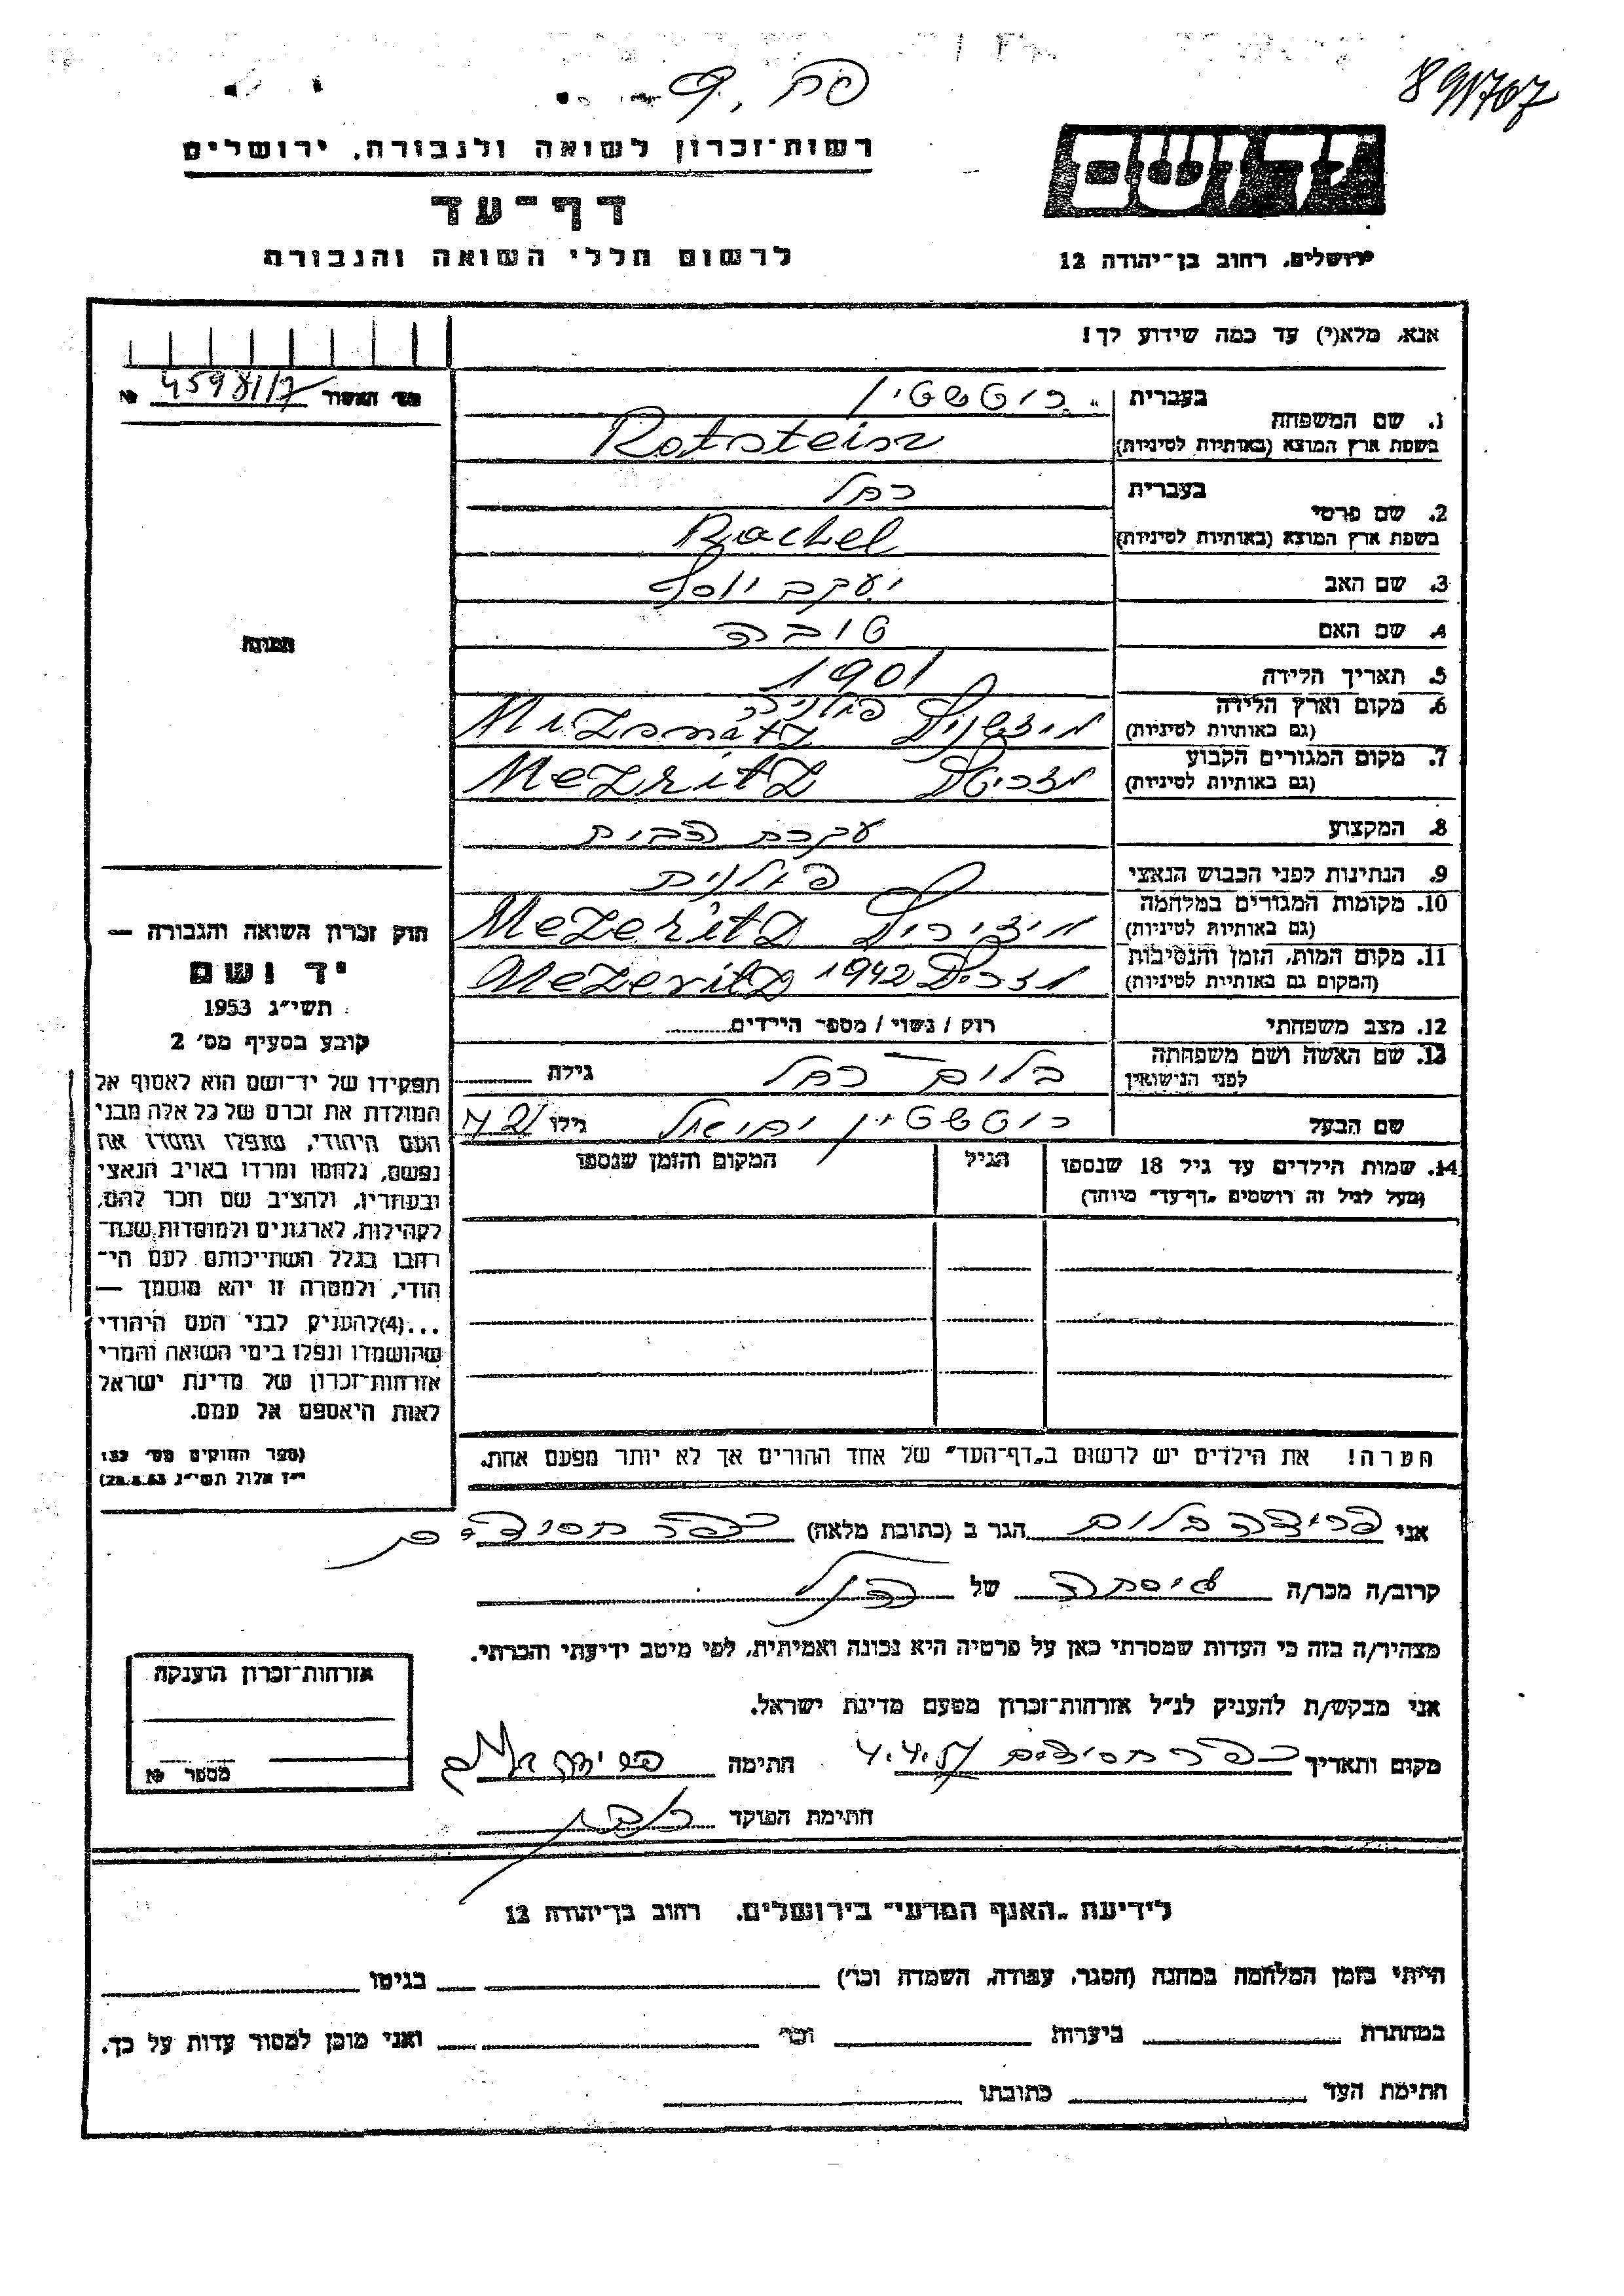 891707
רשות־זכרון לשואה ולגבורה, ירושלים
דף־עד
לרשום חללי השואה והגבורה
יד ושם
ירושלים, רחוב בן־יהודה 12
אנא, מלא(י) עד כמה שידוע לך!
מס' האשור 45981/7 №
תמונה
1. שם המשפחה
בעברית רוטשטיין
בשפת ארץ המוצא (באותיות לטיניות) Rotstein
2. שם פרטי
בעברית רחל
בשפת ארץ המוצא (באותיות לטיניות) Rachel
3. שם האב יעקב יוסף
4. שם האם טובה
5. תאריך הלידה 1901
6. מקום וארץ הלידה (גם באותיות לטיניות) פולניה
7. מקום המגורים הקבוע (גם באותיות לטיניות) מזריטש Mezritz
8. המקצוע עקרת הבית
9. הנתינות לפני הכבוש הנאצי פולנית
10. מקומות המגורים במלחמה (גם באותיות לטיניות) Mezeritz
11. מקום המות, הזמן והנסיבות (המקום גם באותיות לטיניות) 1942 Mezeritz
12. מצב משפחתי רוק / נשוי / מספר הילדים
13. שם האשה ושם משפחתה לפני הנישואין בלום רחל גילה
שם הבעל רוטשטיין ירחמיאל גילו 42
14. שמות הילדים עד גיל 18 שנספו (מעל לגיל זה רושמים "דף־עד" מיוחד) הגיל המקום והזמן שנספו
חוק זכרון השואה והגבורה —
יד ושם
תשי"ג 1953
קובע בסעיף מס' 2
תפקידו של יד־ושם הוא לאסוף אל
המולדת את זכרם של כל אלה מבני
העם היהודי, שנפלו ומסרו את
נפשם, נלחמו ומרדו באויב הנאצי
ובעוזריו, ולהציב שם וזכר להם,
לקהילות, לארגונים ולמוסדות שנח־
רבו בגלל השתייכותם לעם הי־
הודי, ולמטרה זו יהא מוסמך —
...(4) להעניק לבני העם היהודי
שהושמדו ונפלו בימי השואה והמרי
אזרחות־זכרון של מדינת ישראל
לאות היאספם אל עמם.
(ספר החוקים מס' 132
י"ז אלול תשי"ג 28.8.53)
הערה! את הילדים יש לרשום ב"דף־העד" של אחד ההורים אך לא יותר מפעם אחת.
אני פרידה בלום הגר ב (כתובת מלאה) כפר חסידים
קרוב/ה מכר/ה גיסתה של הנ"ל
מצהיר/ה בזה כי העדות שמסרתי כאן על פרטיה היא נכונה ואמיתית, לפי מיטב ידיעתי והכרתי.
אני מבקש/ת להעניק לנ"ל אזרחות־זכרון מטעם מדינת ישראל.
מקום ותאריך כפר חסידים 4.4.57 חתימה פרידה בלום
חתימת הפוקד
אזרחות־זכרון הוענקה
מספר №
לידיעת "האגף המדעי" בירושלים, רחוב בן־יהודה 12
הייתי בזמן המלחמה במחנה (הסגר, עבודה, השמדה וכו') בגיטו
במחתרת ביערות וכו' ואני מוכן למסור עדות על כך.
חתימת העד כתובתו